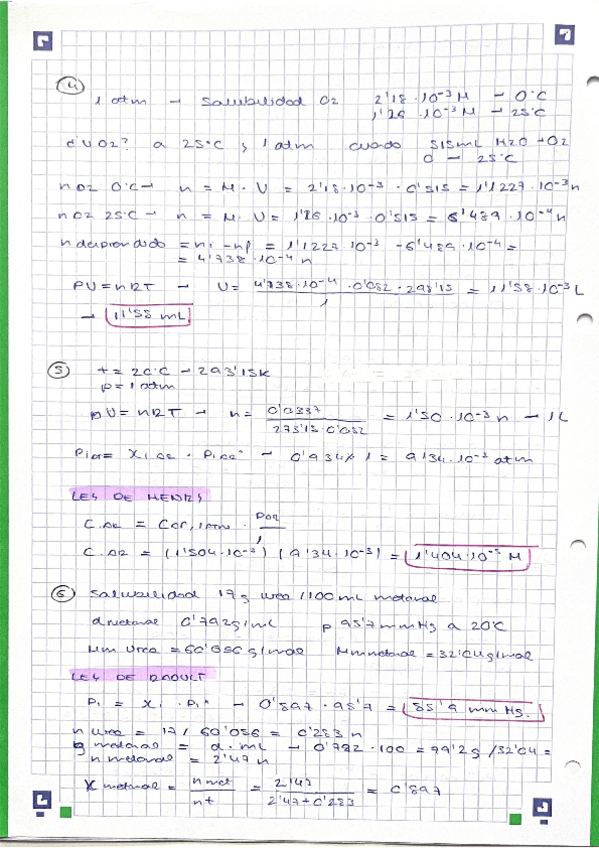 4
1 atm - Solubilidad O2 2'18 · 10⁻³ M - 0°C
1'26 · 10⁻³ M - 25°C
¿V O2? a 25°C y 1 atm cuando 515mL H2O + O2
0 - 25°C
n O2 0°C - n = M · V = 2'18 · 10⁻³ · 0'515 = 1'1227 · 10⁻³ n
n O2 25°C - n = M · V = 1'26 · 10⁻³ · 0'515 = 6'489 · 10⁻⁴ n
n desprendido = ni - nf = 1'1227 · 10⁻³ - 6'489 · 10⁻⁴ =
= 4'738 · 10⁻⁴ n
PV = nRT - V = 4'738 · 10⁻⁴ · 0'082 · 298'15 / 1 = 11'58 · 10⁻³ L
→ 11'58 mL
5
t = 20°C - 293'15K
p = 1 atm
pV = nRT → n = 0'0337 / 273'15 · 0'082 = 1'50 · 10⁻³ n - 1L
LEY DE HENRY
6
Solubilidad 17g urea / 100 mL metanol
d metanol 0'792 g/mL p 95'7 mmHg a 20°C
Mm urea = 60'056 g/mol Mm metanol = 32'04 g/mol
LEY DE RAOULT
Pi = Xi · Pi* - 0'897 · 95'7 = 85'9 mm Hg.
n urea = 17 / 60'056 = 0'283 n
g metanol = d · mL - 0'792 · 100 = 79'2g / 32'04 =
n metanol = 2'47 n
X metanol = n met / nt = 2'47 / 2'47 + 0'283 = 0'897